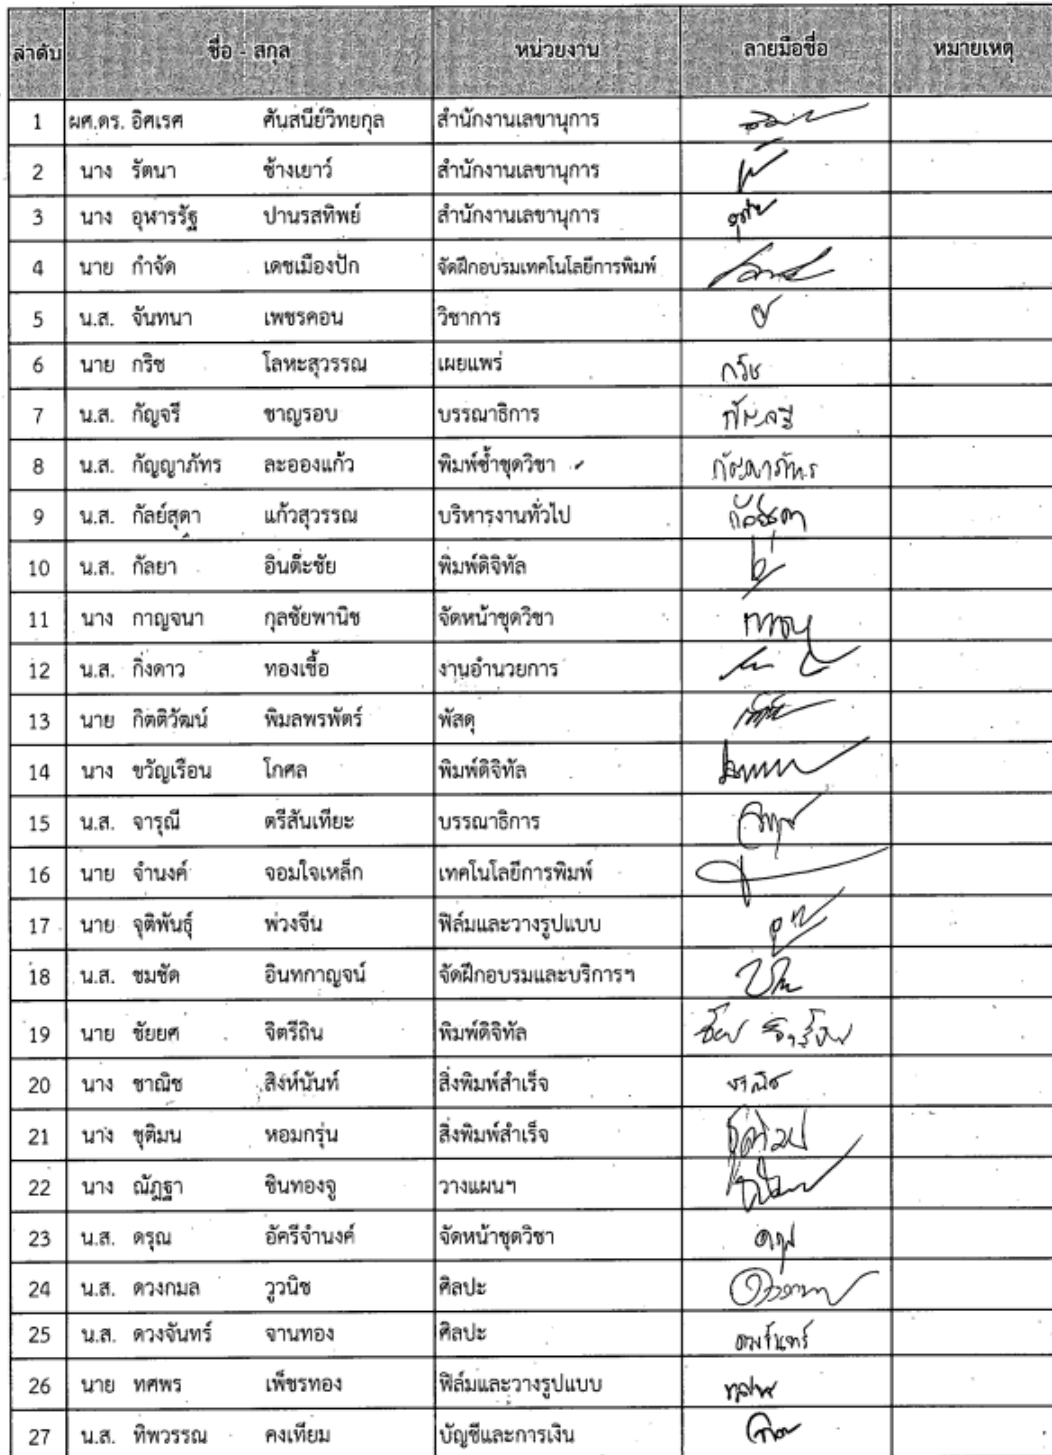 ลำดับ ชื่อ - สกุล หน่วยงาน ลายมือชื่อ หมายเหตุ
1 ผศ.ดร. อิศเรศ ศันสนีย์วิทยกุล สำนักงานเลขานุการ
2 นาง รัตนา ช้างเยาว์ สำนักงานเลขานุการ
3 นาง อุฬารรัฐ ปานรสทิพย์ สำนักงานเลขานุการ
4 นาย กำจัด เดชเมืองปัก จัดฝึกอบรมเทคโนโลยีการพิมพ์
5 น.ส. จันทนา เพชรคอน วิชาการ
6 นาย กริช โลหะสุวรรณ เผยแพร่ กริช
7 น.ส. กัญจรี ชาญรอบ บรรณาธิการ กัญจรี
8 น.ส. กัญญาภัทร ละอองแก้ว พิมพ์ซ้ำชุดวิชา กัญญาภัทร
9 น.ส. กัลย์สุดา แก้วสุวรรณ บริหารงานทั่วไป
10 น.ส. กัลยา อินต๊ะชัย พิมพ์ดิจิทัล
11 นาง กาญจนา กุลชัยพานิช จัดหน้าชุดวิชา
12 น.ส. กิ่งดาว ทองเชื้อ งานอำนวยการ
13 นาย กิตติวัฒน์ พิมลพรพัตร์ พัสดุ
14 นาง ขวัญเรือน โกศล พิมพ์ดิจิทัล
15 น.ส. จารุณี ตรีสันเทียะ บรรณาธิการ
16 นาย จำนงค์ จอมใจเหล็ก เทคโนโลยีการพิมพ์
17 นาย จุติพันธุ์ พ่วงจีน ฟิล์มและวางรูปแบบ
18 น.ส. ชมชัด อินทกาญจน์ จัดฝึกอบรมและบริการฯ
19 นาย ชัยยศ จิตรีถิน พิมพ์ดิจิทัล
20 นาง ชาณิช สิงห์นันท์ สิ่งพิมพ์สำเร็จ ชาณิช
21 นาง ชุติมน หอมกรุ่น สิ่งพิมพ์สำเร็จ
22 นาง ณัฎฐา ชินทองจู วางแผนฯ
23 น.ส. ดรุณ อัครีจำนงค์ จัดหน้าชุดวิชา
24 น.ส. ดวงกมล วูวนิช ศิลปะ
25 น.ส. ดวงจันทร์ จานทอง ศิลปะ ดวงจันทร์
26 นาย ทศพร เพ็ชรทอง ฟิล์มและวางรูปแบบ ทศพร
27 น.ส. ทิพวรรณ คงเทียม บัญชีและการเงิน